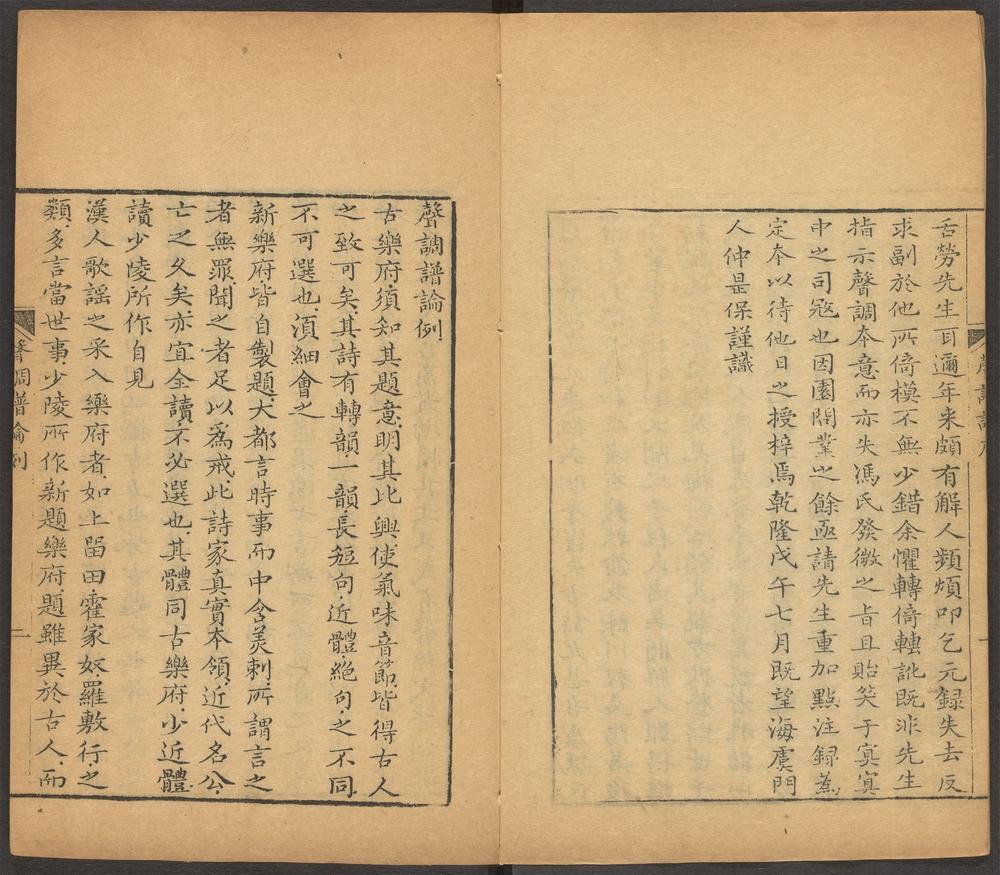 舌勞先生耳邇年来頗有解人頻煩叩乞元録失去反
求副於他所倚模不無少錯余懼轉倚轉訛既非先生
指示聲調夲意而亦失馮氏發微之旨且貽笑于寞寞
中之司寇也因園閱業之餘亟請先生重加點注録爲
定夲以待他日之授梓焉乾隆戊午七月既望海虞門
人仲是保謹識
聲調譜論例
古樂府須知其題意明其比興使氣味音節皆得古人
之致可矣其詩有轉韻一韻長短句近體絕句之不同
不可選也須細會之
新樂府皆自製題大都言時事而中含美刺所謂言之
者無罪聞之者足以爲戒此詩家真實本領近代名公
亡之久矣亦宜全讀不必選也其體同古樂府少近體
讀少陵所作自見
漢人歌謡之采入樂府者如上留田霍家奴羅敷行之
類多言當世事少陵所作新題樂府題雖異於古人而
聲調譜論例
一